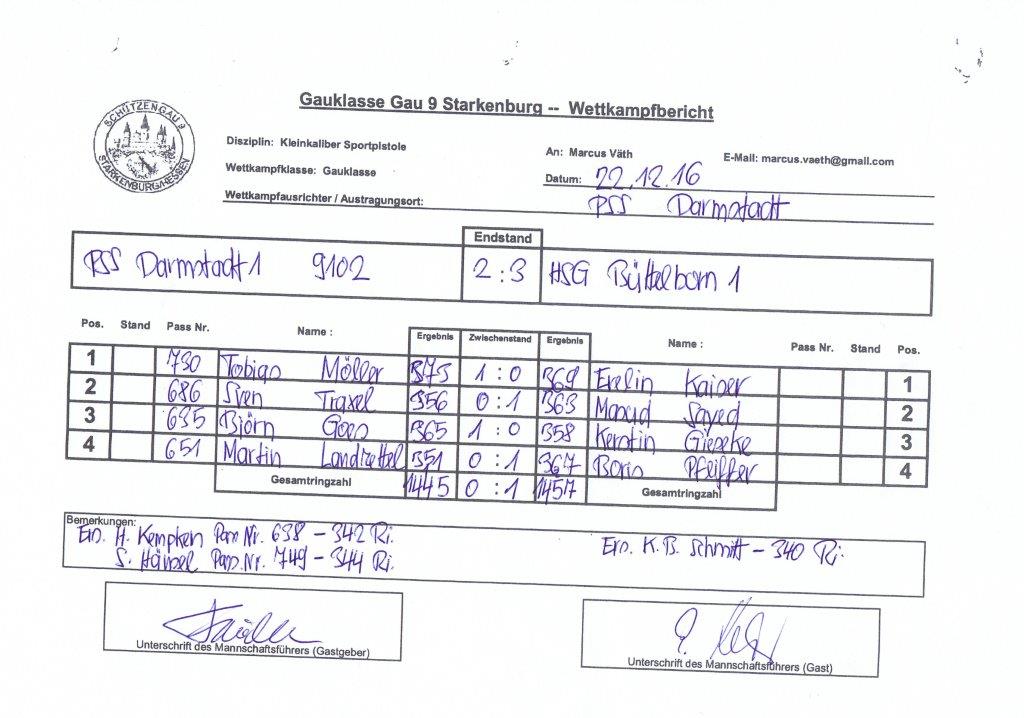 Gauklasse Gau 9 Starkenburg -- Wettkampfbericht
SCHÜTZENGAU 9
STARKENBURG/HESSEN
Disziplin: Kleinkaliber Sportpistole
An: Marcus Väth E-Mail: marcus.vaeth@gmail.com
Wettkampfklasse: Gauklasse
Datum: 22.12.16
Wettkampfausrichter / Austragungsort: PSS Darmstadt
Endstand
PSS Darmstadt 1 9102 2:3 HSG Büttelborn 1
Pos. Stand Pass Nr. Name : Ergebnis Zwischenstand Ergebnis Name : Pass Nr. Stand Pos.
1 730 Tobias Möller 373 1 : 0 369 Evelin Kaiser 1
2 686 Sven Traxel 356 0 : 1 363 Masud Sayed 2
3 635 Björn Goes 365 1 : 0 358 Kerstin Giepeke 3
4 651 Martin 351 0 : 1 367 Boris Pfeiffer 4
Gesamtringzahl 1445 0 : 1 1457 Gesamtringzahl
Bemerkungen:
Ers. H. Kempken Pass Nr. 638 - 342 Ri. Ers. K.B. Schmitt - 340 Ri.
S. Hänsel Pass.Nr. 749 - 344 Ri.
Unterschrift des Mannschaftsführers (Gastgeber)
Unterschrift des Mannschaftsführers (Gast)